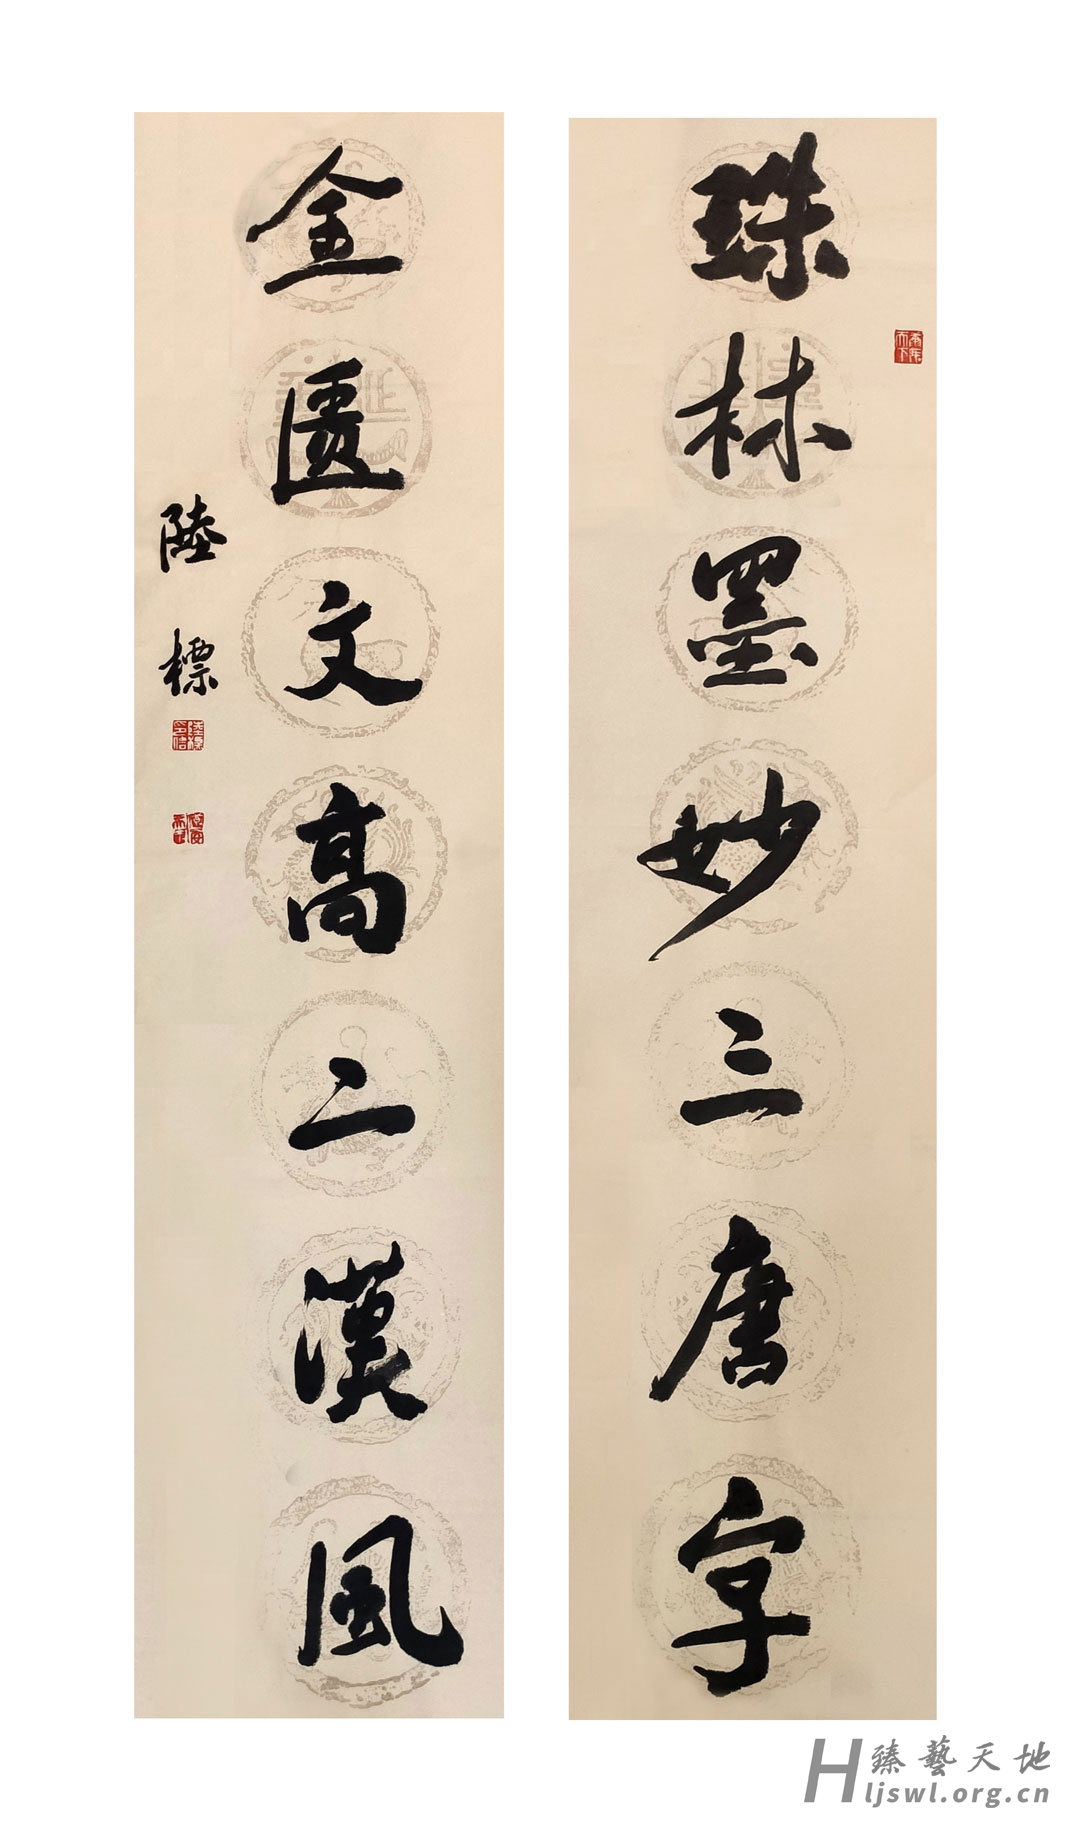 珠林墨妙三唐字
金匱文高二漢風
陸標
臻藝天地
Hljswl.org.cn